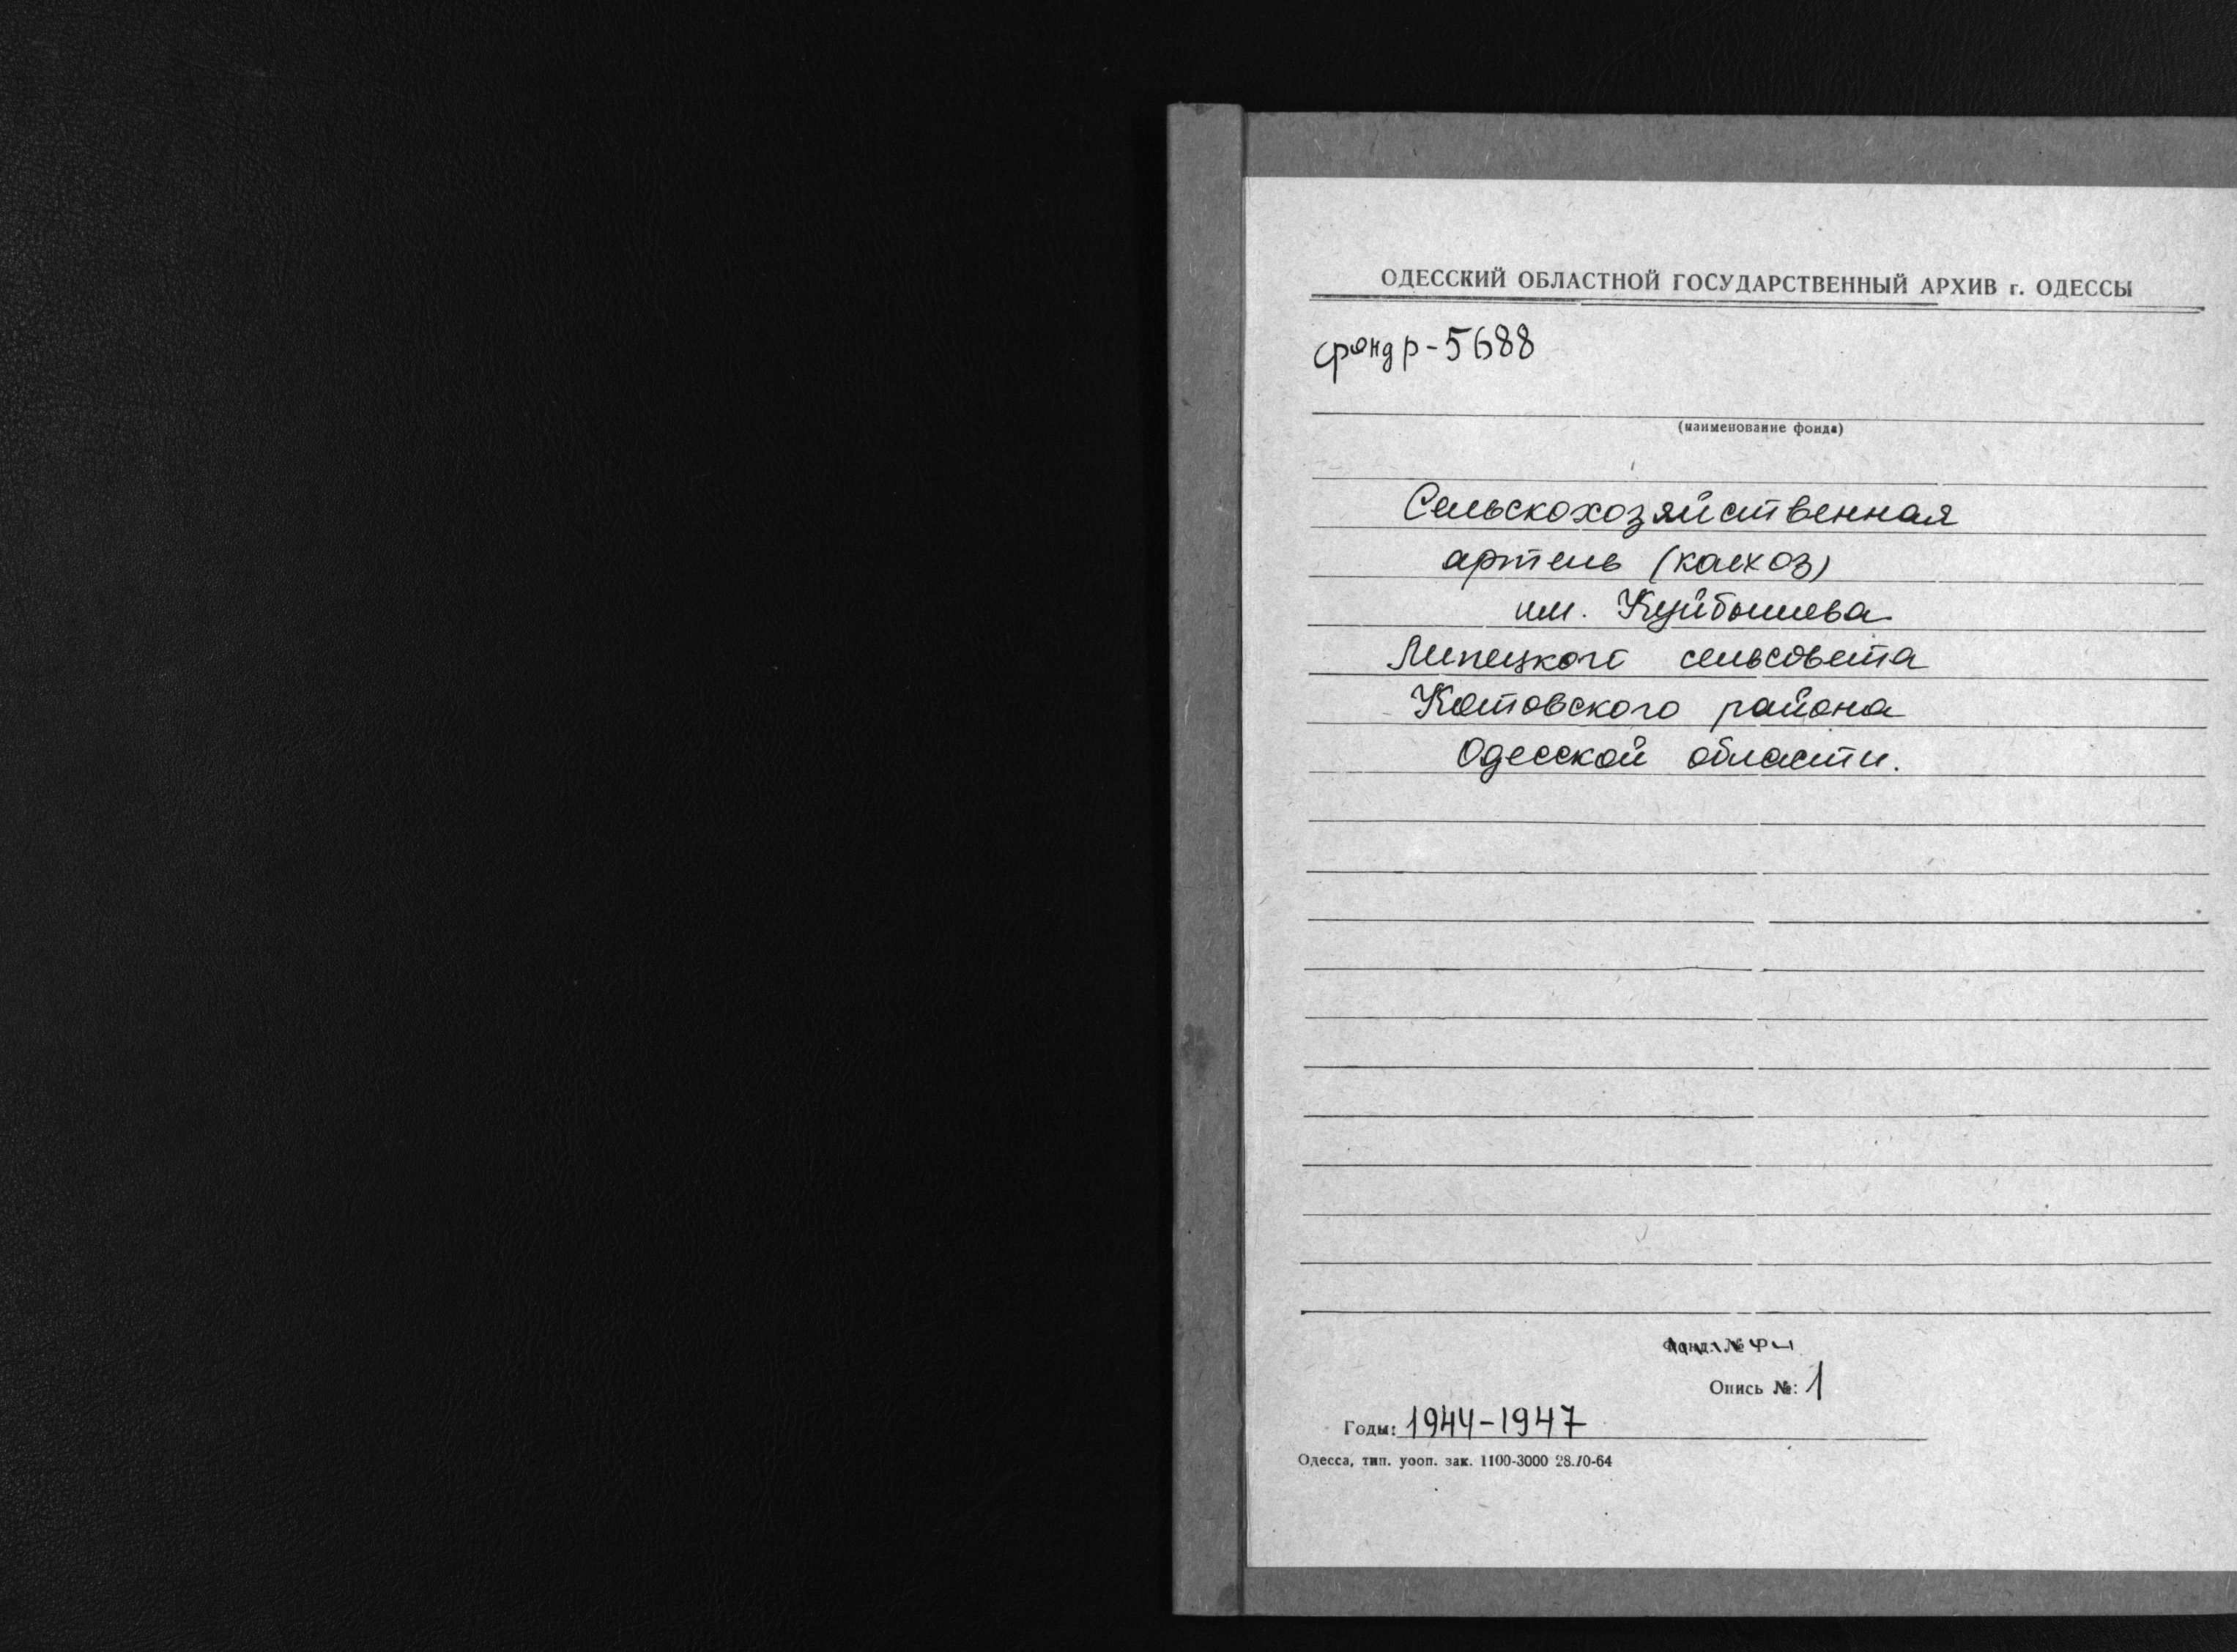 ОДЕССКИЙ ОБЛАСТНОЙ ГОСУДАРСТВЕННЫЙ АРХИВ г. ОДЕССЫ
фонд р-5688
(наименование фонда)
Сельскохозяйственная
артель (колхоз)
им. Куйбышева
Липецкого сельсовета
Котовского района
Одесской области.
Фонд №
Опись №: 1
Годы: 1944-1947
Одесса, тип. уооп. зак. 1100-3000 28.10-64